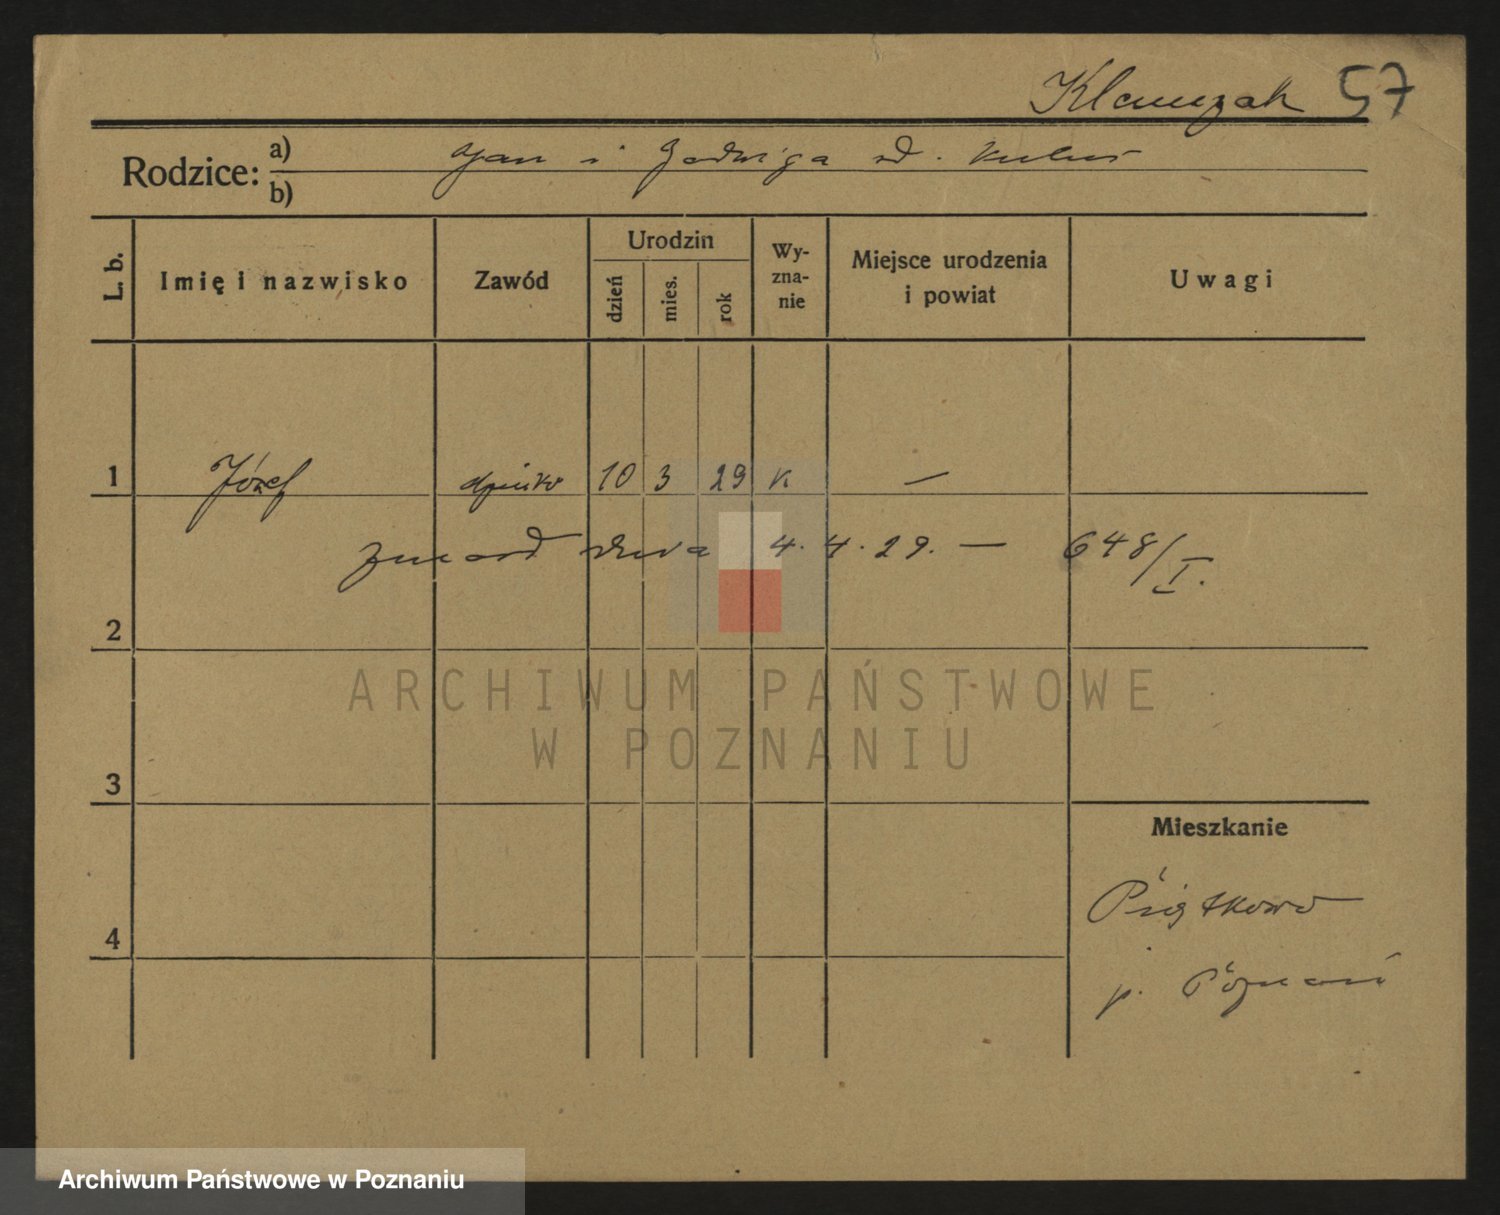 Klamczak 57
Rodzice: a) Jan i Jadwiga zd. Kubiś
b)
L. b. Imię i nazwisko Zawód Urodzin dzień mies. rok Wyznanie Miejsce urodzenia i powiat Uwagi
1 Józef dziecko 10 3 29 K —
zmarł dnia 4.4.29. — 648/I.
2
3
4
Mieszkanie
Piątkowo
p. Poznań
ARCHIWUM PAŃSTWOWE
W POZNANIU
Archiwum Państwowe w Poznaniu